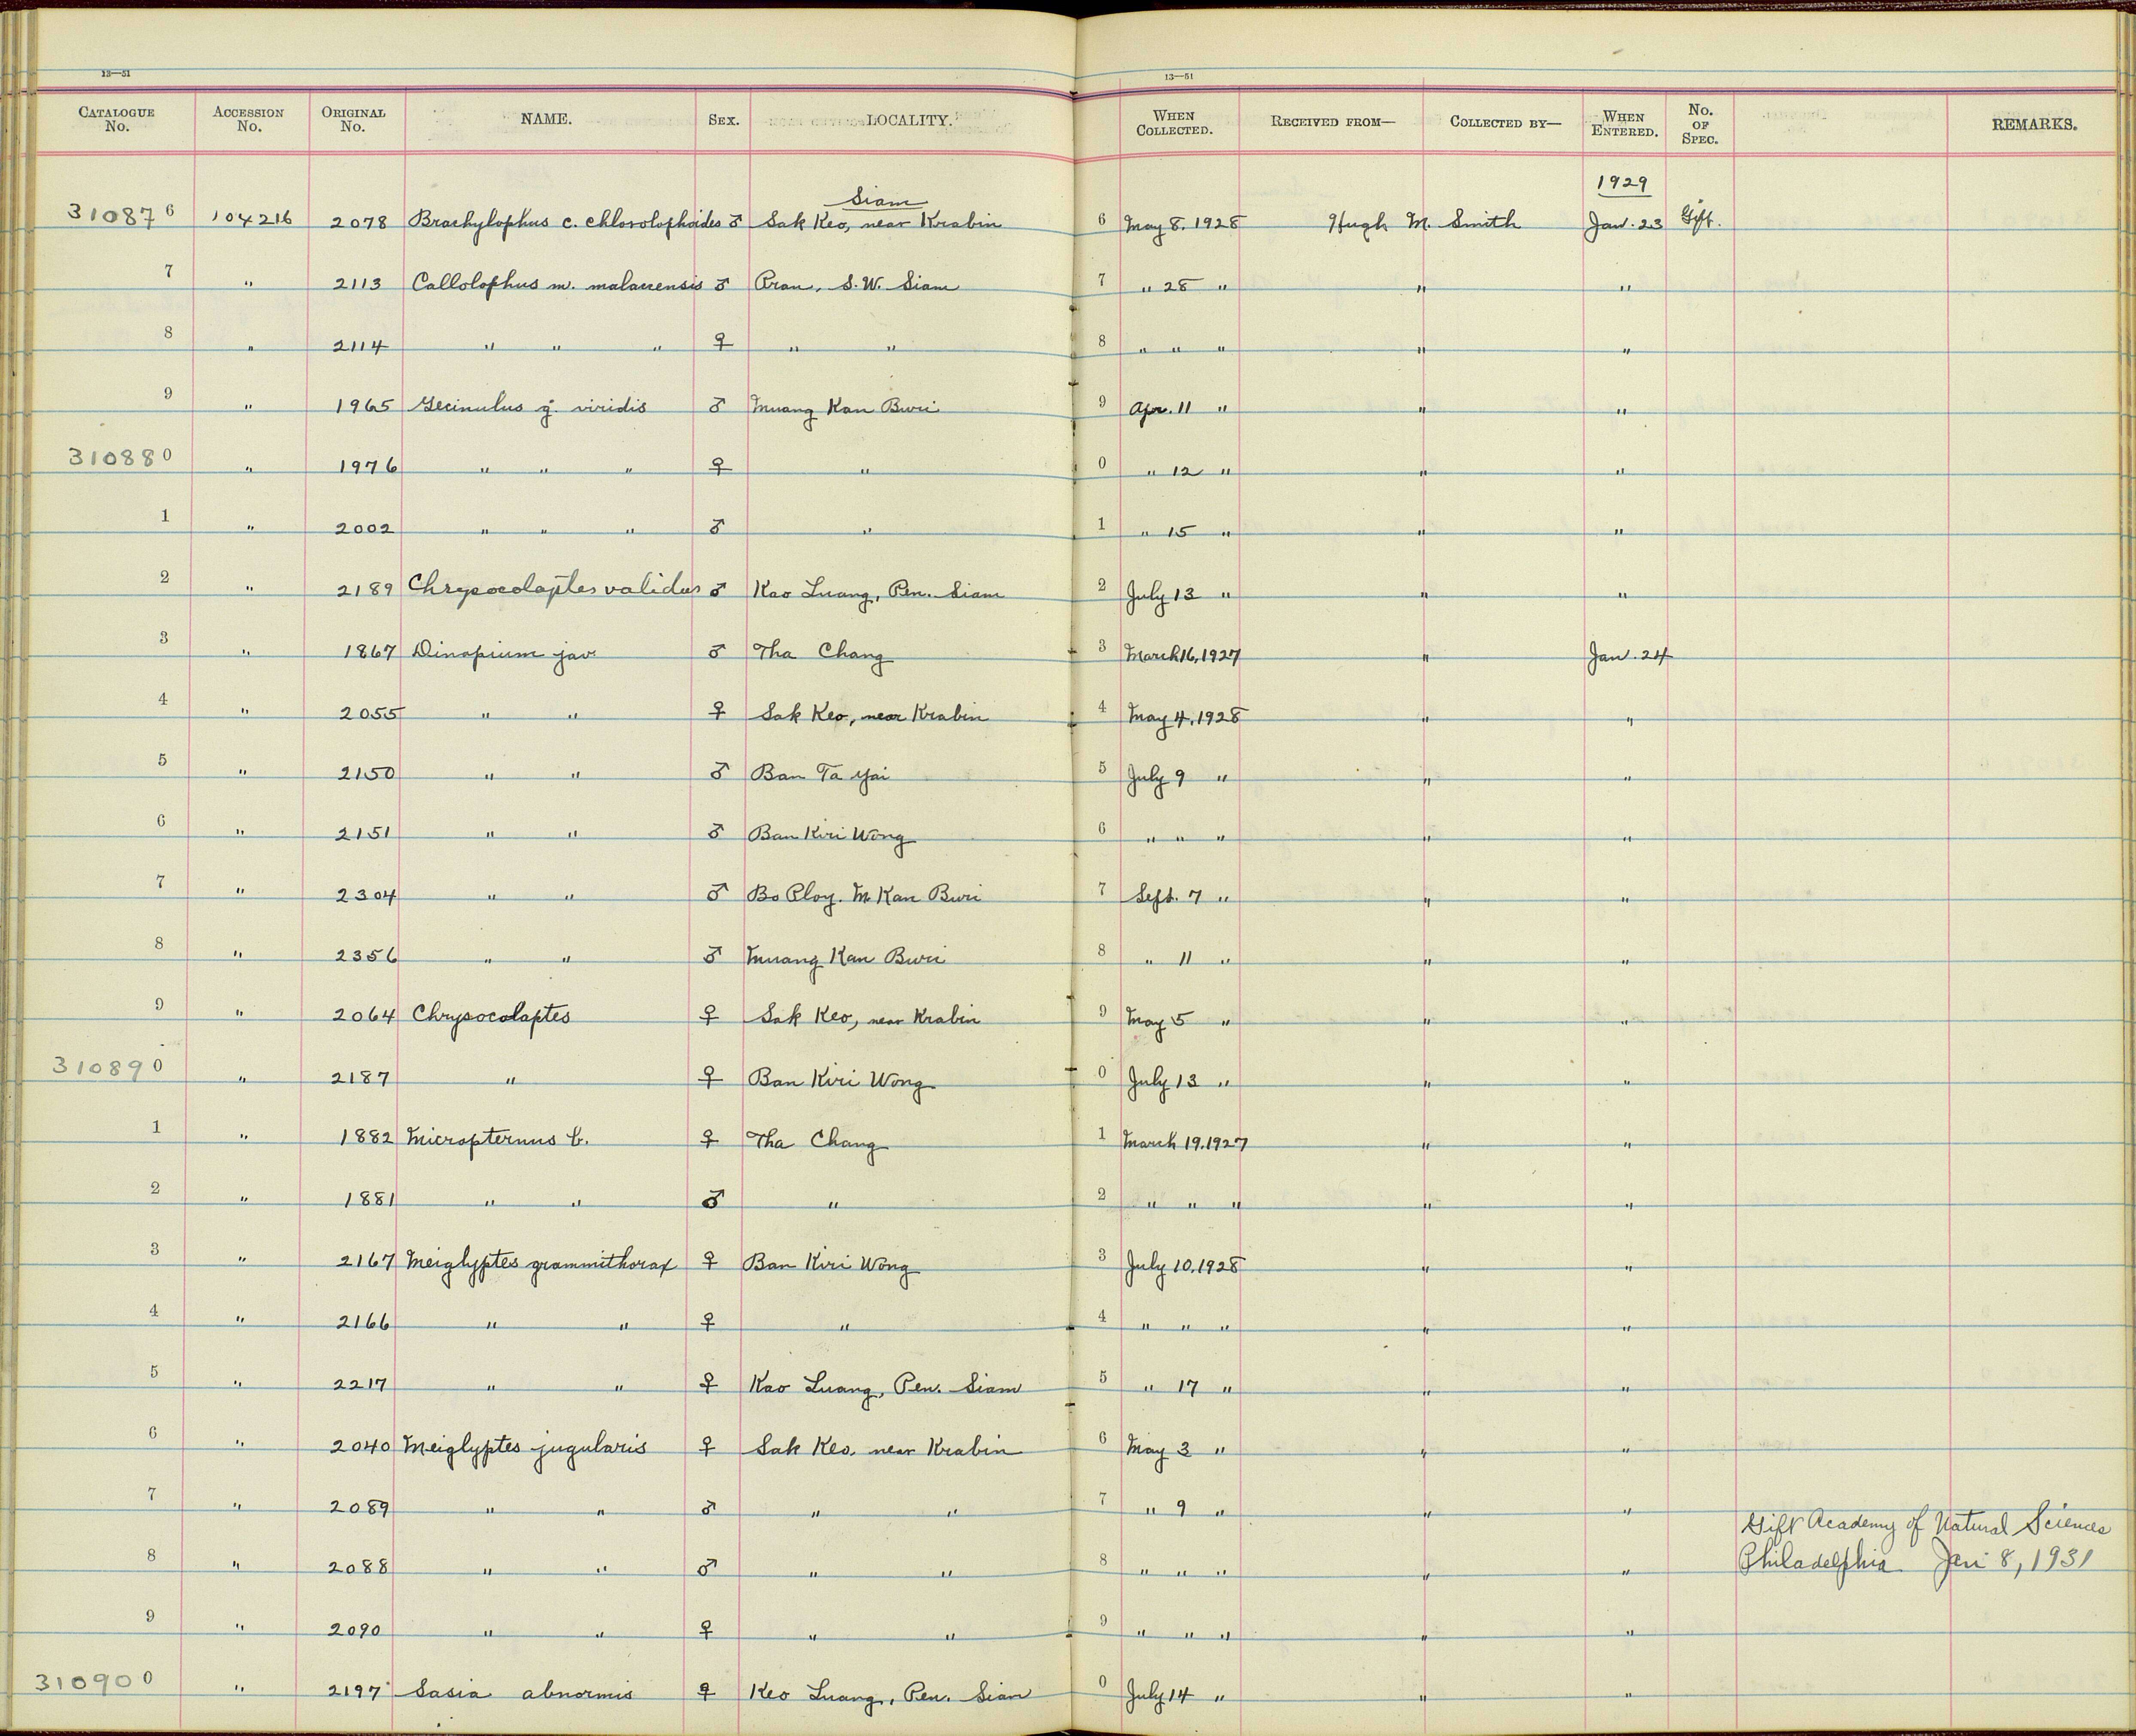 13—51 13—51
CATALOGUE No. ACCESSION No. ORIGINAL No. NAME. SEX. LOCALITY. WHEN COLLECTED. RECEIVED FROM— COLLECTED BY— WHEN ENTERED. No. OF SPEC. REMARKS.
Siam 1929
310876 104216 2078 Brachylophus c. chlorolophoides ♂ Sak Keo, near Krabin 6 May 8, 1928 Hugh M. Smith Jan. 23 Gift.
7 " 2113 Callolophus m. malaccensis ♂ Pran, S.W. Siam 7 " 28 " " "
8 " 2114 " " " ♀ " " 8 " " " " "
9 " 1965 Gecinulus g. viridis ♂ Muang Kan Buri 9 Apr. 11 " " "
310880 " 1976 " " " ♀ " 0 " 12 " " "
1 " 2002 " " " ♂ " 1 " 15 " " "
2 " 2189 Chrysocolaptes validus ♂ Kao Luang, Pen. Siam 2 July 13 " " "
3 " 1867 Dinopium jav. ♂ Tha Chang 3 March 16, 1927 " Jan. 24
4 " 2055 " " ♀ Sak Keo, near Krabin 4 May 4, 1928 " "
5 " 2150 " " ♂ Ban Ta Yai 5 July 9 " " "
6 " 2151 " " ♂ Ban Kiri Wong 6 " " " " "
7 " 2304 " " ♂ Bo Ploy. M. Kan Buri 7 Sept. 7 " " "
8 " 2356 " " ♂ Muang Kan Buri 8 " 11 " " "
9 " 2064 Chrysocolaptes ♀ Sak Keo, near Krabin 9 May 5 " " "
310890 " 2187 " ♀ Ban Kiri Wong 0 July 13 " " "
1 " 1882 Micropternus b. ♀ Tha Chang 1 March 19, 1927 " "
2 " 1881 " " ♂ " 2 " " " " "
3 " 2167 Meiglyptes grammithorax ♀ Ban Kiri Wong 3 July 10, 1928 " "
4 " 2166 " " ♀ " 4 " " " " "
5 " 2217 " " ♀ Kao Luang, Pen. Siam 5 " 17 " " "
6 " 2040 Meiglyptes jugularis ♀ Sak Keo, near Krabin 6 May 3 " " "
7 " 2089 " " ♂ " " 7 " 9 " " "
Gift Academy of Natural Sciences
8 " 2088 " " ♂ " " 8 " " " " " Philadelphia Jan 8, 1931
9 " 2090 " " ♀ " " 9 " " " " "
310900 " 2197 Sasia abnormis ♀ Keo Luang, Pen. Siam 0 July 14 " " "